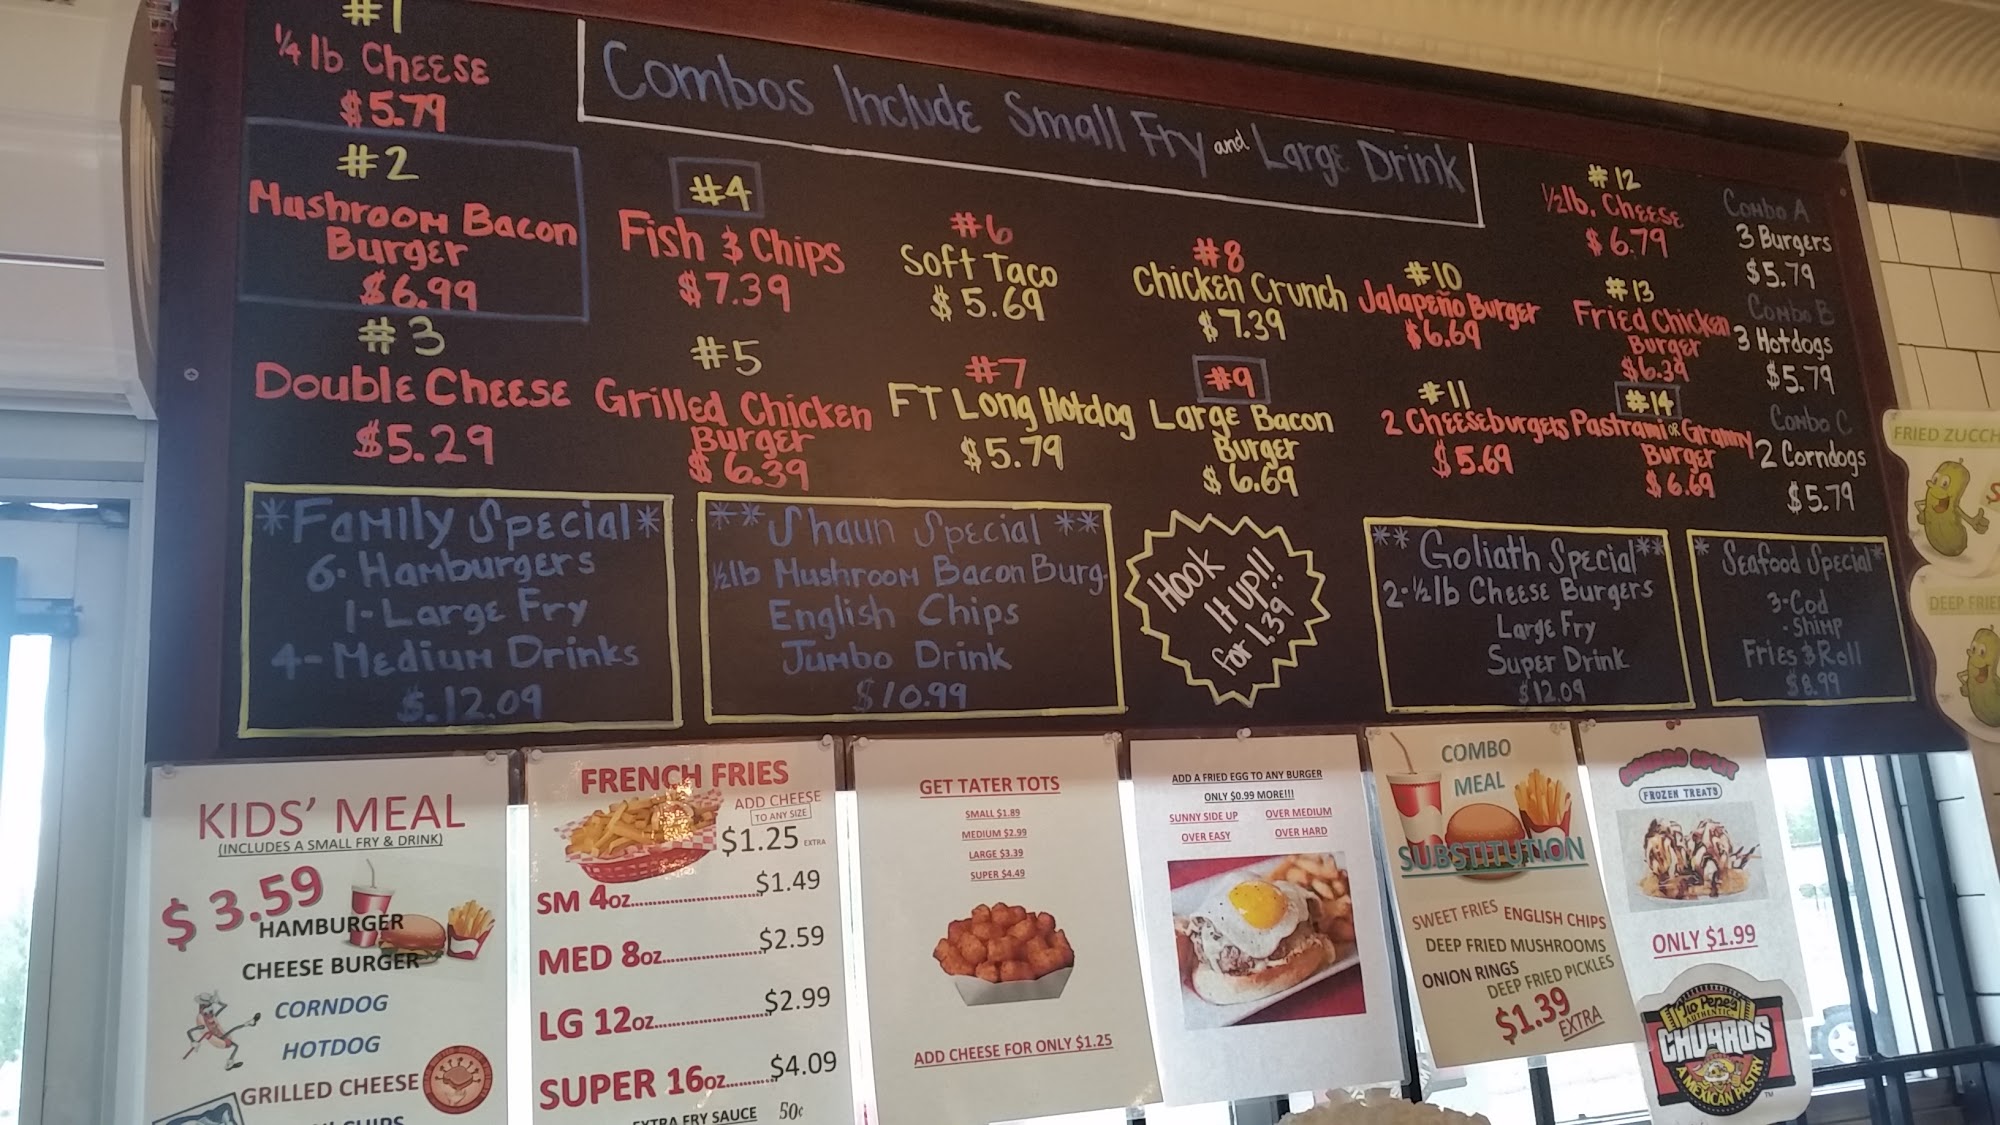 #1
¼ lb Cheese
$5.79
#2
Mushroom Bacon
Burger
$6.99
#3
Double Cheese
$5.29
Combos Include Small Fry and Large Drink
#4
Fish & Chips
$7.39
#5
Grilled Chicken
Burger
$6.39
#6
Soft Taco
$5.69
#7
FT Long Hotdog
$5.79
#8
Chicken Crunch
$7.39
#9
Large Bacon
Burger
$6.69
#10
Jalapeño Burger
$6.69
#11
2 Cheeseburgers
$5.69
#12
½lb. Cheese
$6.79
#13
Fried Chicken
Burger
$6.39
#14
Pastrami or Granny
Burger
$6.69
Combo A
3 Burgers
$5.79
Combo B
3 Hotdogs
$5.79
Combo C
2 Corndogs
$5.79
*Family Special*
6-Hamburgers
1-Large Fry
4-Medium Drinks
$.12.09
**Shaun Special**
½lb Mushroom Bacon Burg.
English Chips
Jumbo Drink
$10.99
Hook
It up!!
for 1.39
**Goliath Special**
2-½lb Cheese Burgers
Large Fry
Super Drink
$12.09
*Seafood Special*
3-Cod
-Shimp
Fries & Roll
$8.99
KIDS' MEAL
(INCLUDES A SMALL FRY & DRINK)
$3.59
HAMBURGER
CHEESE BURGER
CORNDOG
HOTDOG
GRILLED CHEESE
CHIPS
FRENCH FRIES
ADD CHEESE
TO ANY SIZE
$1.25 EXTRA
SM 4OZ..............$1.49
MED 8OZ..............$2.59
LG 12OZ..............$2.99
SUPER 16OZ..........$4.09
EXTRA FRY SAUCE 50¢
GET TATER TOTS
SMALL $1.89
MEDIUM $2.99
LARGE $3.39
SUPER $4.49
ADD CHEESE FOR ONLY $1.25
ADD A FRIED EGG TO ANY BURGER
ONLY $0.99 MORE!!!
SUNNY SIDE UP OVER MEDIUM
OVER EASY OVER HARD
COMBO
MEAL
SUBSTITUTION
SWEET FRIES ENGLISH CHIPS
DEEP FRIED MUSHROOMS
ONION RINGS DEEP FRIED PICKLES
$1.39 EXTRA
FROZEN TREATS
ONLY $1.99
Tio Pepe's
AUTHENTIC
CHURROS
A MEXICAN PASTRY
TM
FRIED ZUCCH
DEEP FRIE